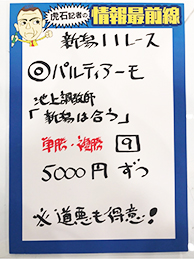 虎石記者の
情報最前線
新潟11レース
◎パルティアーモ
池上調教師
「新潟は合う」
単勝・複勝 9
5000円ずつ
※道悪も得意!